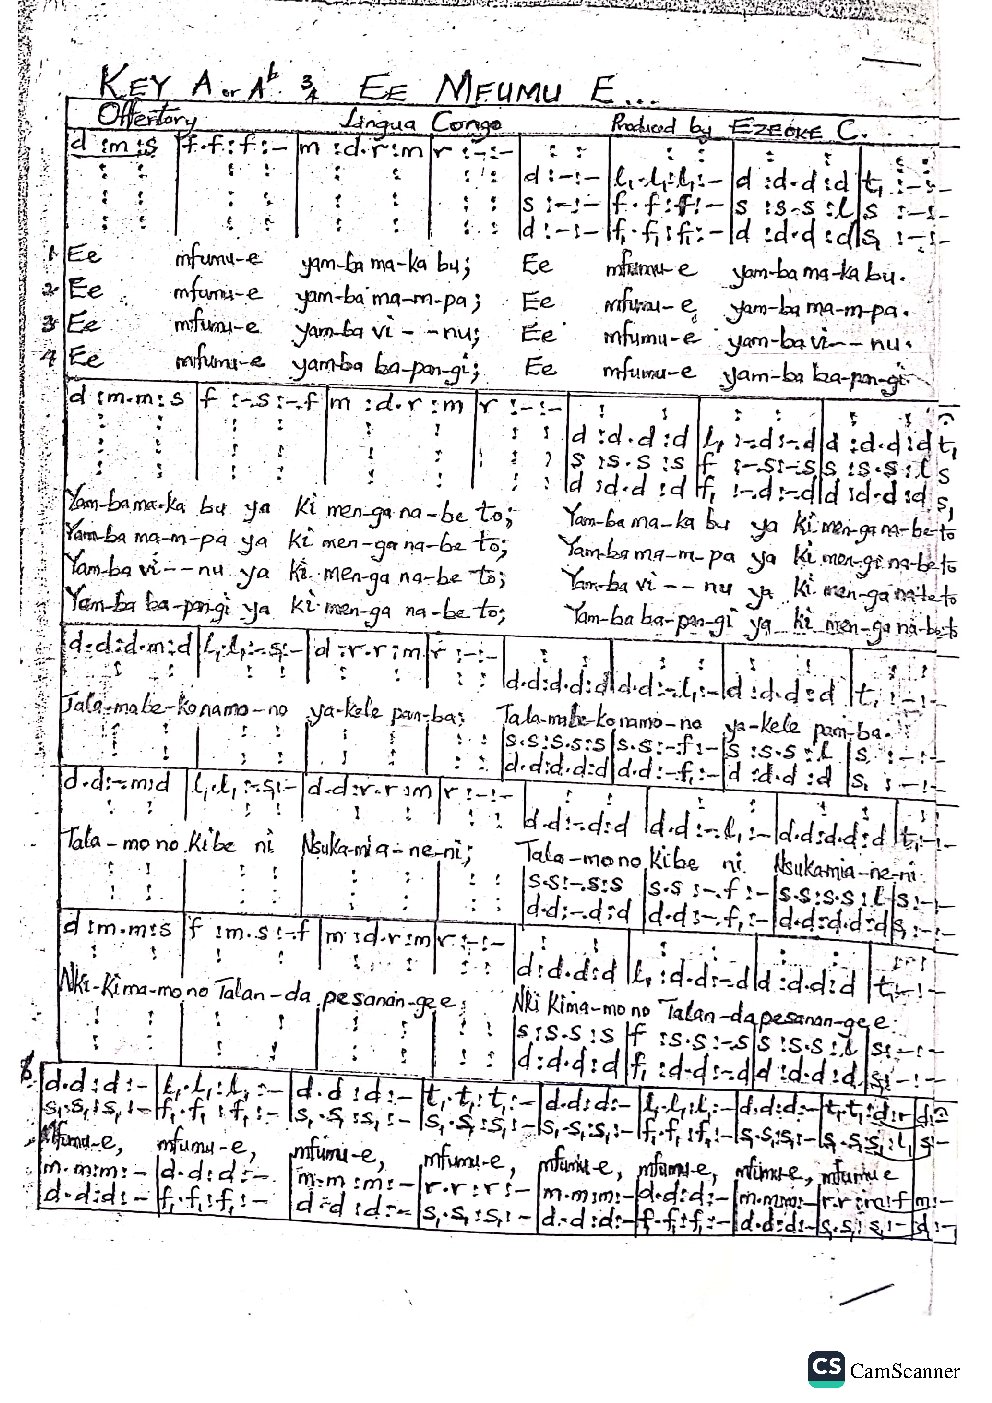 KEY A or A♭ 3/4 EE MFUMU E...
Offertory Lingua Congo Produced by EZEOKE C.
d :m:s |f.f:f:-|m :d.r:m|r :-:-| : : | : : | : : | : :
d :-:-|l₁.l₁:l₁:-|d :d.d:d|t₁ :-:-
s :-:-|f.f:f:-|s :s.s:l|s :-:-
d :-:-|f₁.f₁:f₁:-|d :d.d:d|s₁ :-:-
1 Ee mfumu-e yam-ba ma-ka bu; Ee mfumu-e yam-ba ma-ka bu.
2 Ee mfumu-e yam-ba ma-m-pa; Ee mfumu-e yam-ba ma-m-pa.
3 Ee mfumu-e yam-ba vi--nu; Ee mfumu-e yam-ba vi--nu.
4 Ee mfumu-e yamba ba-pan-gi; Ee mfumu-e yam-ba ba-pan-gi
d :m.m:s|f :-.s:-.f|m :d.r:m|r :-:-| : : | : : | : :
d :d.d:d|l₁ :-.d:-.d|d :d.d:d|t₁
s :s.s:s|f :-.s:-.s|s :s.s:l|s
d :d.d:d|f₁ :-.d:-.d|d :d.d:d|s₁
Yam-ba ma-ka bu ya ki men-ga na-be to; Yam-ba ma-ka bu ya ki men-ga na-be to
Yam-ba ma-m-pa ya ki men-ga na-be to; Yam-ba ma-m-pa ya ki men-ga na-be to
Yam-ba vi--nu ya ki men-ga na-be to; Yam-ba vi--nu ya ki men-ga na-be to
Yam-ba ba-pan-gi ya ki men-ga na-be to; Yam-ba ba-pan-gi ya ki men-ga na-be to
d.d:d.m:d|l₁.l₁:-.s₁:-|d :r.r:m|r :-:-
d.d:d.d:d|d.d:-.l₁:-|d :d.d:d|t₁ :-:-
Tala-mabe-konamo-no ya-kele pam-ba; Tala-mabe-konamo-no ya-kele pam-ba.
s.s:s.s:s|s.s:-.f:-|s :s.s:l|s :-:-
d.d:d.d:d|d.d:-.f₁:-|d :d.d:d|s₁ :-:-
d.d:-.m:d|l₁.l₁:-.s₁:-|d.d:r.r:m|r :-:-
d.d:-.d:d|d.d:-.l₁:-|d.d:d.d:d|t₁:-:-
Tala-mo no Kibe ni Nsuka-mia-ne-ni; Tala-mo no Kibe ni Nsukamia-ne-ni.
s.s:-.s:s|s.s:-.f:-|s.s:s.s:l|s:-:-
d.d:-.d:d|d.d:-.f₁:-|d.d:d.d:d|s₁:-:-
d :m.m:s|f :m.s:-.f|m :d.r:m|r :-:-
d:d.d:d|l₁:d.d:-.d|d:d.d:d|t₁:-:-
Nki-Kima-mo no Talan-da pesanan-gee; Nki Kima-mo no Talan-da pesanan-gee.
s:s.s:s|f :s.s:-.s|s :s.s:l|s:-:-
d:d.d:d|f₁:d.d:-.d|d:d.d:d|s₁:-:-
d.d:d:-|l₁.l₁:l₁:-|d.d:d:-|t₁.t₁:t₁:-|d.d:d:-|l₁.l₁:l₁:-|d.d:d:-|t₁.t₁:d:r|d:-
s₁.s₁:s₁:-|f₁.f₁:f₁:-|s₁.s₁:s₁:-|s₁.s₁:s₁:-|s₁.s₁:s₁:-|f₁.f₁:f₁:-|s₁.s₁:s₁:-|s₁.s₁:s₁:l₁|s₁:-
Mfumu-e, mfumu-e, mfumu-e, mfumu-e, mfumu-e, mfumu-e, mfumu-e, mfumu e
m.m:m:-|d.d:d:-|m.m:m:-|r.r:r:-|m.m:m:-|d.d:d:-|m.m:m:-|r.r:m:f|m:-
d.d:d:-|f₁.f₁:f₁:-|d.d:d:-|s₁.s₁:s₁:-|d.d:d:-|f₁.f₁:f₁:-|d.d:d:-|s₁.s₁:s₁:-|d:-
CS CamScanner